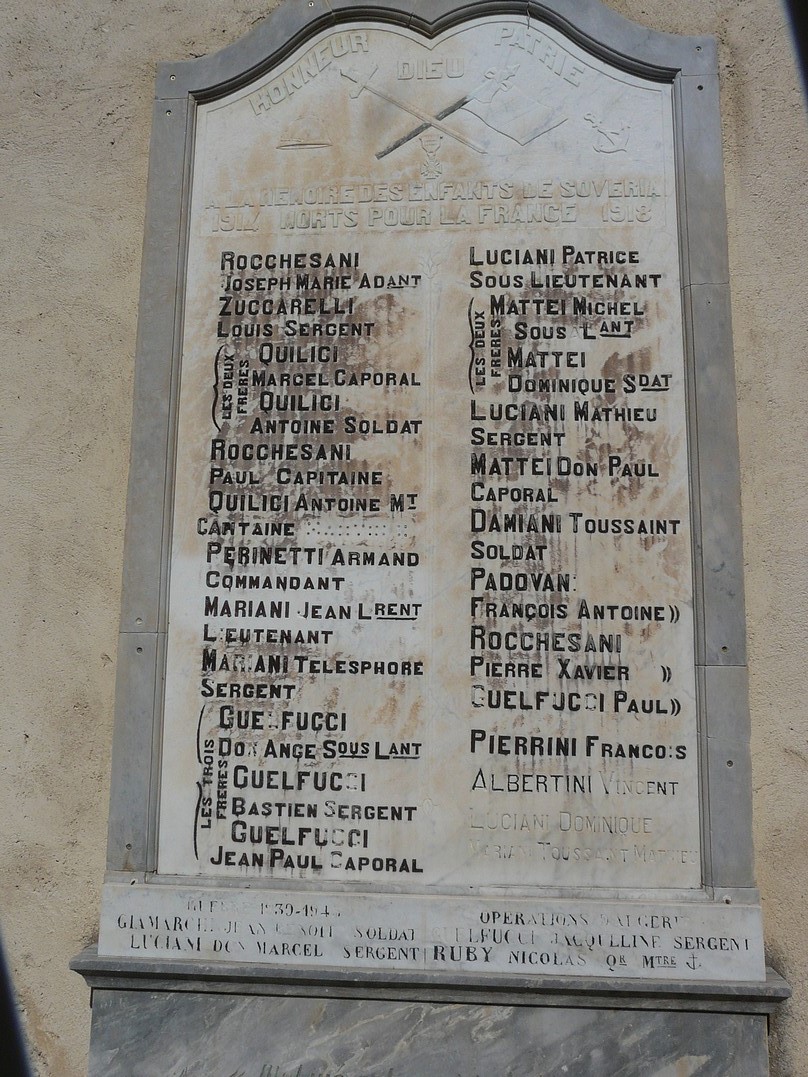 HONNEUR DIEU PATRIE
A LA MEMOIRE DES ENFANTS DE SOVERIA
1914 MORTS POUR LA FRANCE 1918
ROCCHESANI
JOSEPH MARIE ADANT
ZUCCARELLI
LOUIS SERGENT
LES DEUX FRERES
QUILICI
MARCEL CAPORAL
QUILICI
ANTOINE SOLDAT
ROCCHESANI
PAUL CAPITAINE
QUILICI ANTOINE MT
CANTAINE
PERINETTI ARMAND
COMMANDANT
MARIANI JEAN LRENT
LIEUTENANT
MARIANI TELESPHORE
SERGENT
LES TROIS FRERES
GUELFUCCI
DON ANGE SOUS LANT
GUELFUCCI
BASTIEN SERGENT
GUELFUCCI
JEAN PAUL CAPORAL
LUCIANI PATRICE
SOUS LIEUTENANT
LES DEUX FRERES
MATTEI MICHEL
SOUS LANT
MATTEI
DOMINIQUE SDAT
LUCIANI MATHIEU
SERGENT
MATTEI DON PAUL
CAPORAL
DAMIANI TOUSSAINT
SOLDAT
PADOVANI
FRANÇOIS ANTOINE »
ROCCHESANI
PIERRE XAVIER »
GUELFUCCI PAUL »
PIERRINI FRANCOIS
ALBERTINI VINCENT
LUCIANI DOMINIQUE
MARIANI TOUSSAINT MATHIEU
GUERRE 1939-1945
GIAMARCHI JEAN SOLDAT
LUCIANI DON MARCEL SERGENT
OPERATIONS D'ALGERIE
GUELFUCCI JACQULLINE SERGENT
RUBY NICOLAS QR MTRE